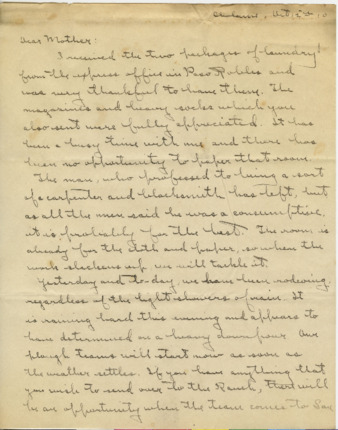 Cholame, Oct. 2nd 10
Dear Mother:
I received the two packages of laundry
from the express office in Paso Robles and
was very thankful to have them. The
magazines and heavy socks which you
also sent were fully appreciated. It has
been a busy time with me and there has
been no opportunity to paper that room.
The man, who professed to being a sort
of carpenter and blacksmith has left, but
as all the men said he was a consumptive,
it is probably for the best. The room is
already for the cloth and paper, so when the
work slackens up, we will tackle it.
Yesterday and to-day, we have been rodeoing,
regardless of the light showers of rain. It
is raining hard this evening and appears to
have determined on a heavy down pour. Our
plough teams will start now as soon as
the weather settles. If you have anything that
you wish to send over to the Ranch, there will
be an opportunity when the team comes to San